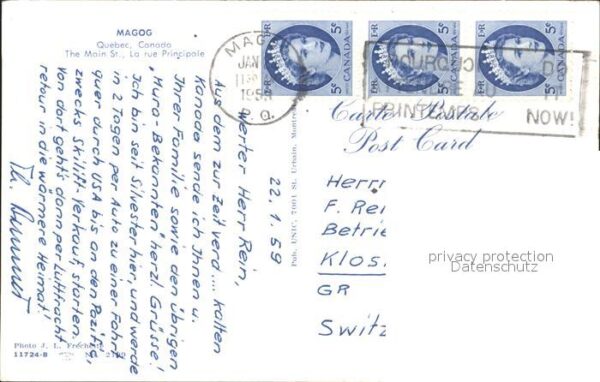 MAGOG
Quebec, Canada
The Main St., La rue Principale
MAGOG
JAN
1959
P. Q.
5¢ CANADA
5¢ CANADA
5¢ CANADA
NOW!
Carte Postale
Post Card
22.1.59
Werter Herr Rein,
Aus dem zur Zeit verd.... kalten
Kanada sende ich Ihnen u.
Ihrer Familie sowie den übrigen
"Huro-Bekannten" herzl. Grüsse!
Ich bin seit Silvester hier, und werde
in 2 Tagen per Auto zu einer Fahrt
quer durch USA bis an den Pazific,
zwecks Skilift-Verkauf, starten.
Von dort geht's dann per Luftfracht
retour in die wärmere Heimat!
Pub. UNIC, 7001 St. Urbain, Montreal
Herrn
F. Rei
Betrie
Klos.
GR
Switz
privacy protection
Datenschutz
Photo J. L. Frechette
11724-B